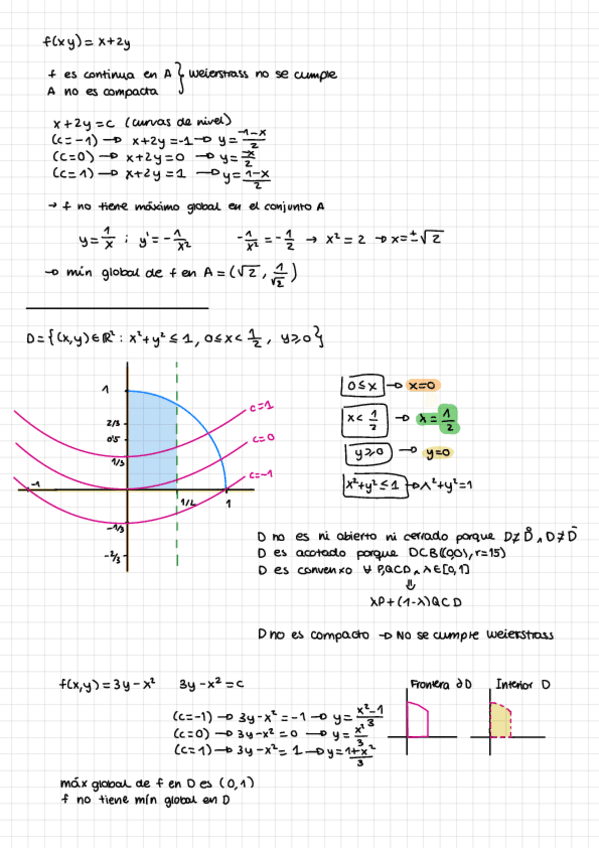 f(xy) = x+2y
f es continua en A } Weierstrass no se cumple
A no es compacta
x+2y=c (curvas de nivel)
(c=-1) → x+2y=-1 → y = -1-x/2
(c=0) → x+2y=0 → y = -x/2
(c=1) → x+2y=1 → y = 1-x/2
→ f no tiene máximo global en el conjunto A
y = 1/x ; y' = -1/x² -1/x² = -1/2 → x² = 2 → x = ±√2
→ mín global de f en A = (√2, 1/√2)
D = {(x,y) ∈ ℝ² : x²+y² ≤ 1, 0≤x< 1/2, y≥0}
1
2/3
0'5
1/3
-1
1/2
1
-1/3
-2/3
c=1
c=0
c=-1
0≤x → x=0
x< 1/2 → x = 1/2
y≥0 → y=0
x²+y² ≤ 1 → x²+y²=1
D no es ni abierto ni cerrado porque D≠D̊ ∧ D≠D̄
D es acotado porque D⊂B((0,0), r=15)
D es convexo ∀ P,Q⊂D ∧ λ∈[0,1]
⇓
λP+(1-λ)Q⊂D
D no es compacto → No se cumple Weierstrass
f(x,y) = 3y-x² 3y-x² = c
(c=-1) → 3y-x² = -1 → y = x²-1/3
(c=0) → 3y-x² = 0 → y = x²/3
(c=1) → 3y-x² = 1 → y = 1+x²/3
Frontera ∂D
Interior D
máx global de f en D es (0,1)
f no tiene mín global en D